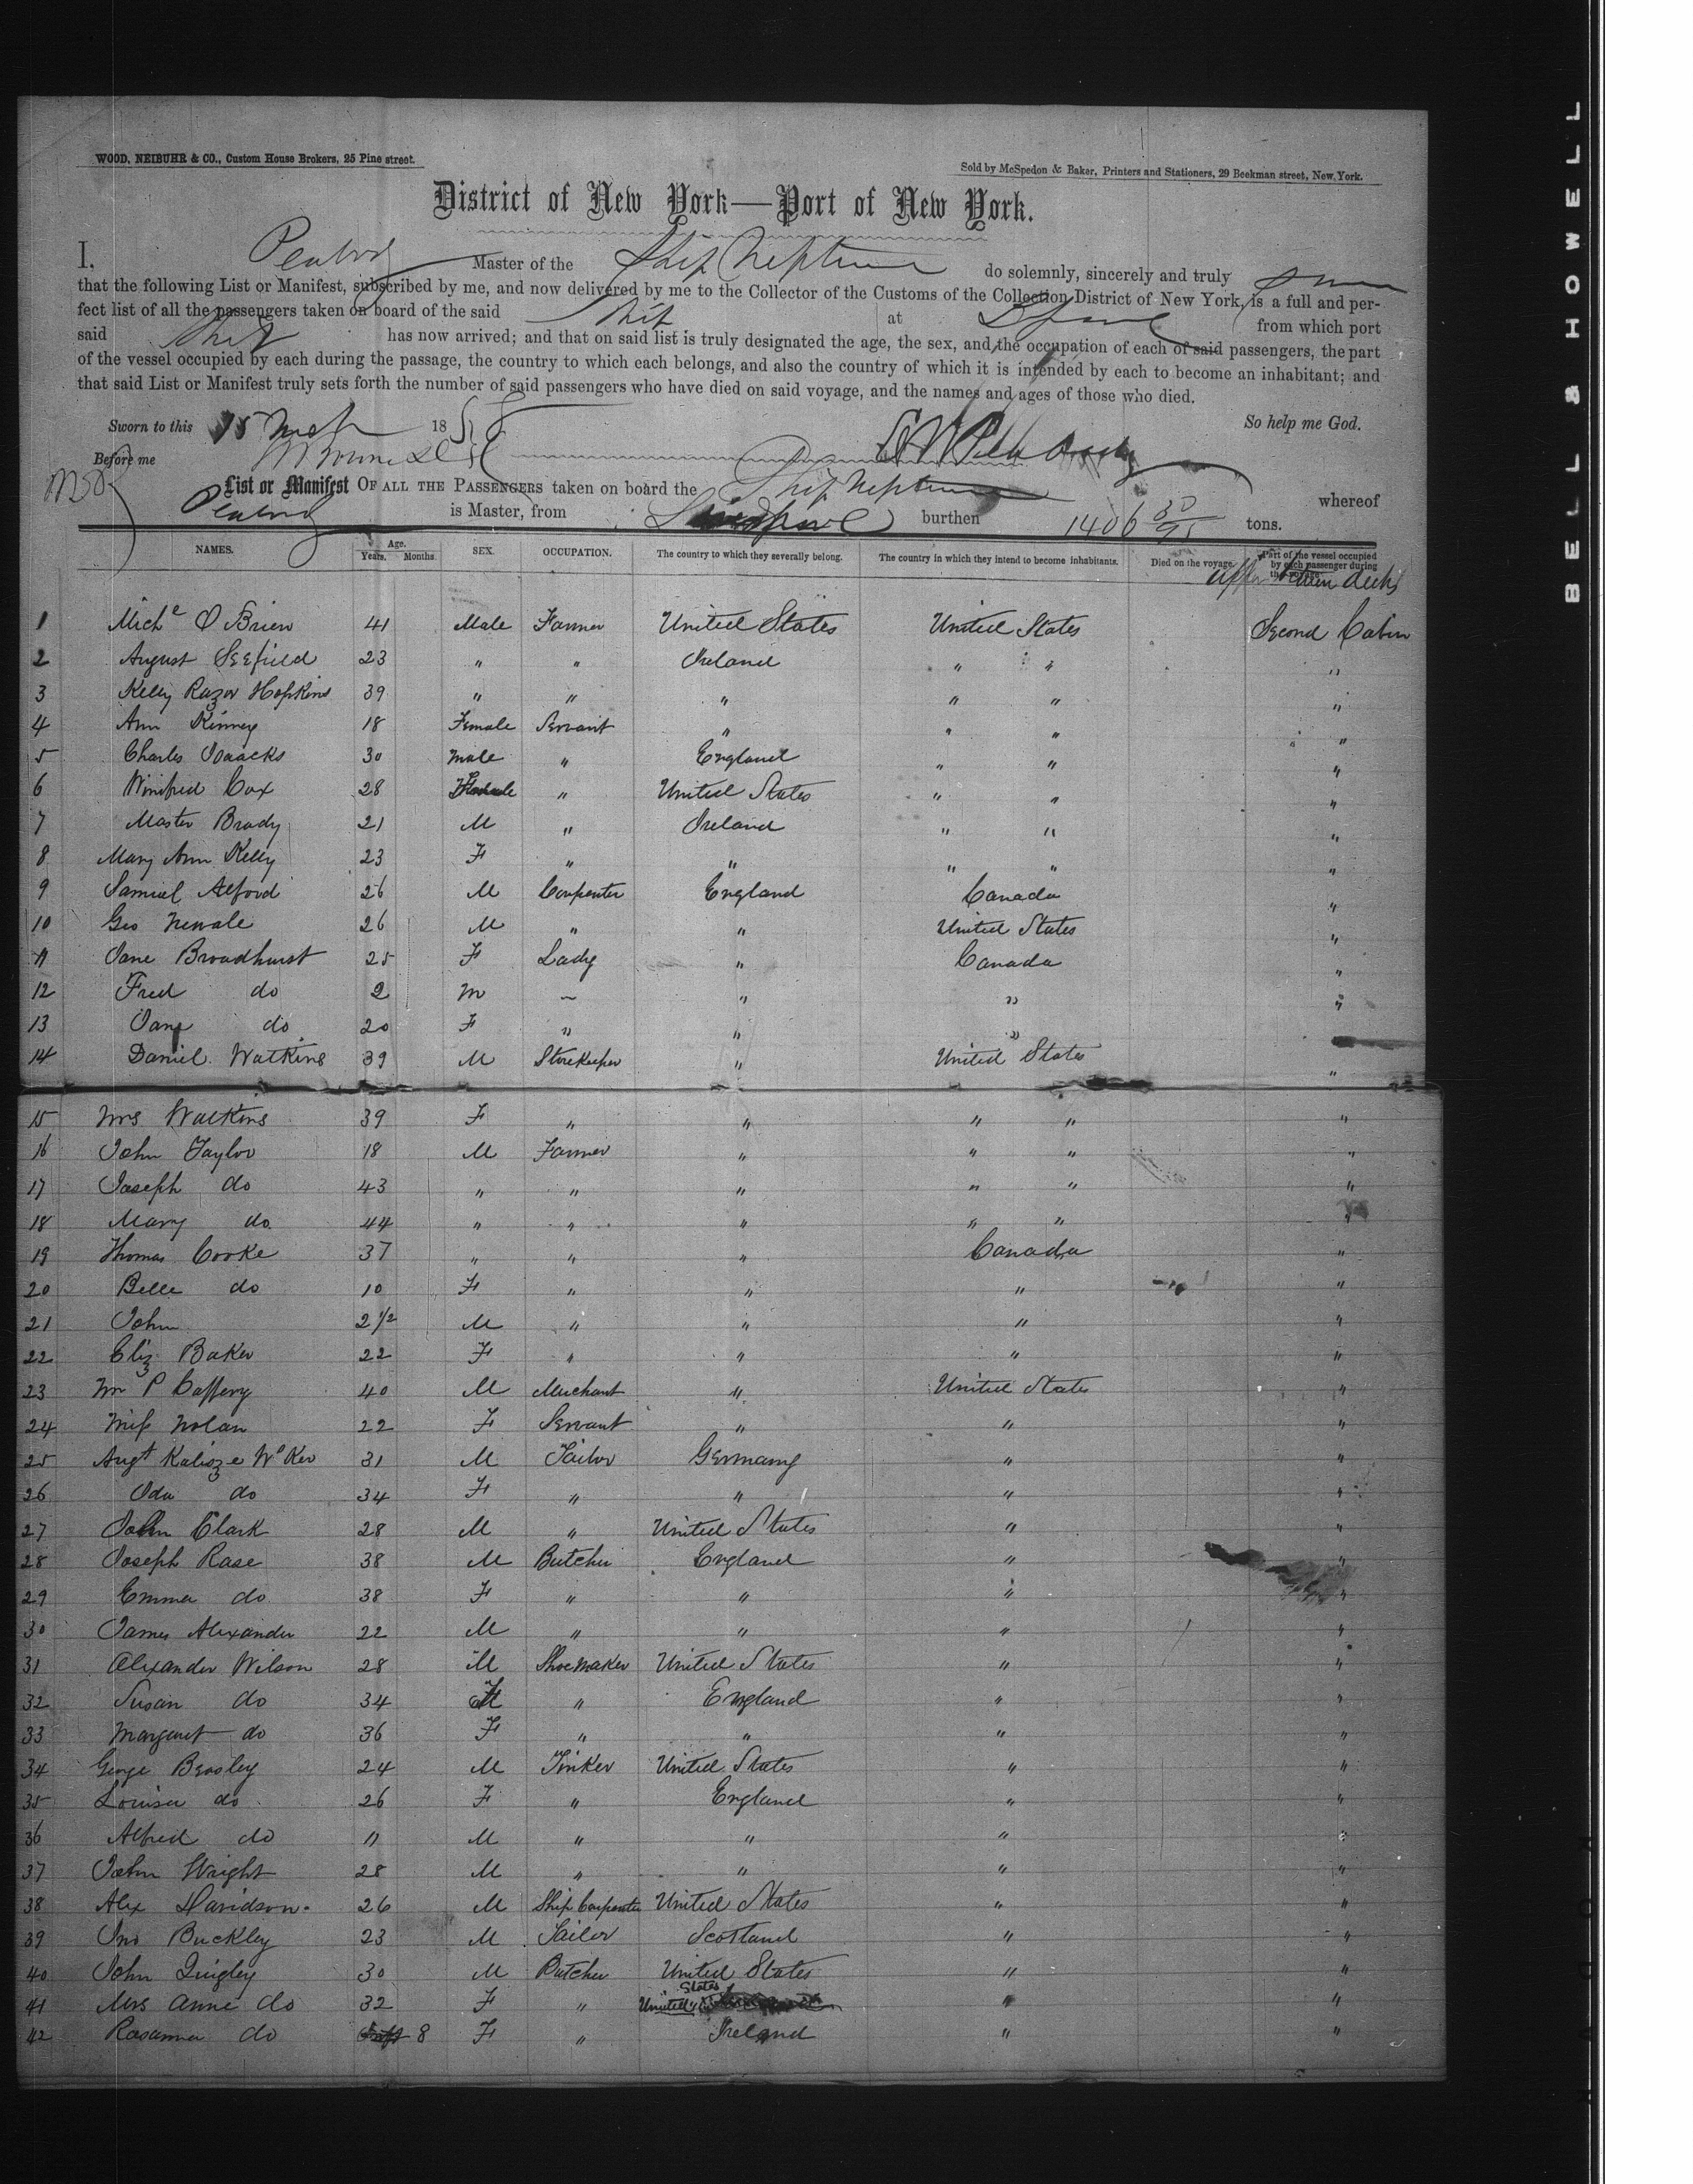 WOOD, NEIBUHR & CO., Custom House Brokers, 25 Pine street.
Sold by McSpedon & Baker, Printers and Stationers, 29 Beekman street, New York.
District of New York—Port of New York.
I, Peabody Master of the Ship Neptune do solemnly, sincerely and truly swear
that the following List or Manifest, subscribed by me, and now delivered by me to the Collector of the Customs of the Collection District of New York, is a full and per-
fect list of all the passengers taken on board of the said Ship at Lpool from which port
said Ship has now arrived; and that on said list is truly designated the age, the sex, and the occupation of each of said passengers, the part
of the vessel occupied by each during the passage, the country to which each belongs, and also the country of which it is intended by each to become an inhabitant; and
that said List or Manifest truly sets forth the number of said passengers who have died on said voyage, and the names and ages of those who died.
Sworn to this 15 March 1858 So help me God.
Before me E W Peabody
List or Manifest OF ALL THE PASSENGERS taken on board the Ship Neptune whereof
Peabody is Master, from Liverpool burthen 1406 30/95 tons.
NAMES. Age. Years. Months. SEX. OCCUPATION. The country to which they severally belong. The country in which they intend to become inhabitants. Died on the voyage. Part of the vessel occupied by each passenger during the voyage.
upper tween decks
1 Michl O Brien 41 Male Farmer United States United States Second Cabin
2 August Seefield 23 " " Ireland " " "
3 Kelly Razor Hopkins 39 " " " " " "
4 Ann Kinney 18 Female Servant " " " " "
5 Charles Isaacks 30 male " England " " "
6 Winifred Cox 28 Female " United States " " "
7 Master Brady 21 M " Ireland " " "
8 Mary Ann Kelly 23 F " " " " "
9 Samuel Alford 26 M Carpenter England Canada "
10 Geo Newale 26 M " " United States "
11 Jane Broadhurst 25 F Lady " Canada "
12 Fred do 2 m ~ " " "
13 Jane do 20 F " " " "
14 Daniel Watkins 39 M Storekeeper " United States "
15 Mrs Watkins 39 F " " " " "
16 John Taylor 18 M Farmer " " " "
17 Joseph do 43 " " " " " "
18 Mary do 44 " " " " " "
19 Thomas Cooke 37 " " " Canada "
20 Belle do 10 F " " " "
21 John 2 1/2 M " " " "
22 Eliz Baker 22 F " " " "
23 Mr P Caffery 40 M Merchant " United States "
24 Miss Nolan 22 F Servant " " "
25 Augt 31 M Tailor Germany " "
26 Ida do 34 F " " " "
27 John Clark 28 M " United States " "
28 Joseph Rase 38 M Butcher England " "
29 Emma do 38 F " " " "
30 James Alexander 22 M " " " "
31 Alexander Wilson 28 M Shoemaker United States " "
32 Susan do 34 F " England " "
33 Margaret do 36 F " " " "
34 George Beasley 24 M Tinker United States " "
35 Louisa do 26 F " England " "
36 Alfred do 11 M " " " "
37 John Wright 28 M " " " "
38 Alex Davidson 26 M Ship Carpenter United States " "
39 Jno Buckley 23 M Sailor Scotland " "
40 John Quigley 30 M Butcher United States " "
41 Mrs Anne do 32 F " United States " "
42 Rosanna do 8 F " Ireland " "
BELL & HOWELL